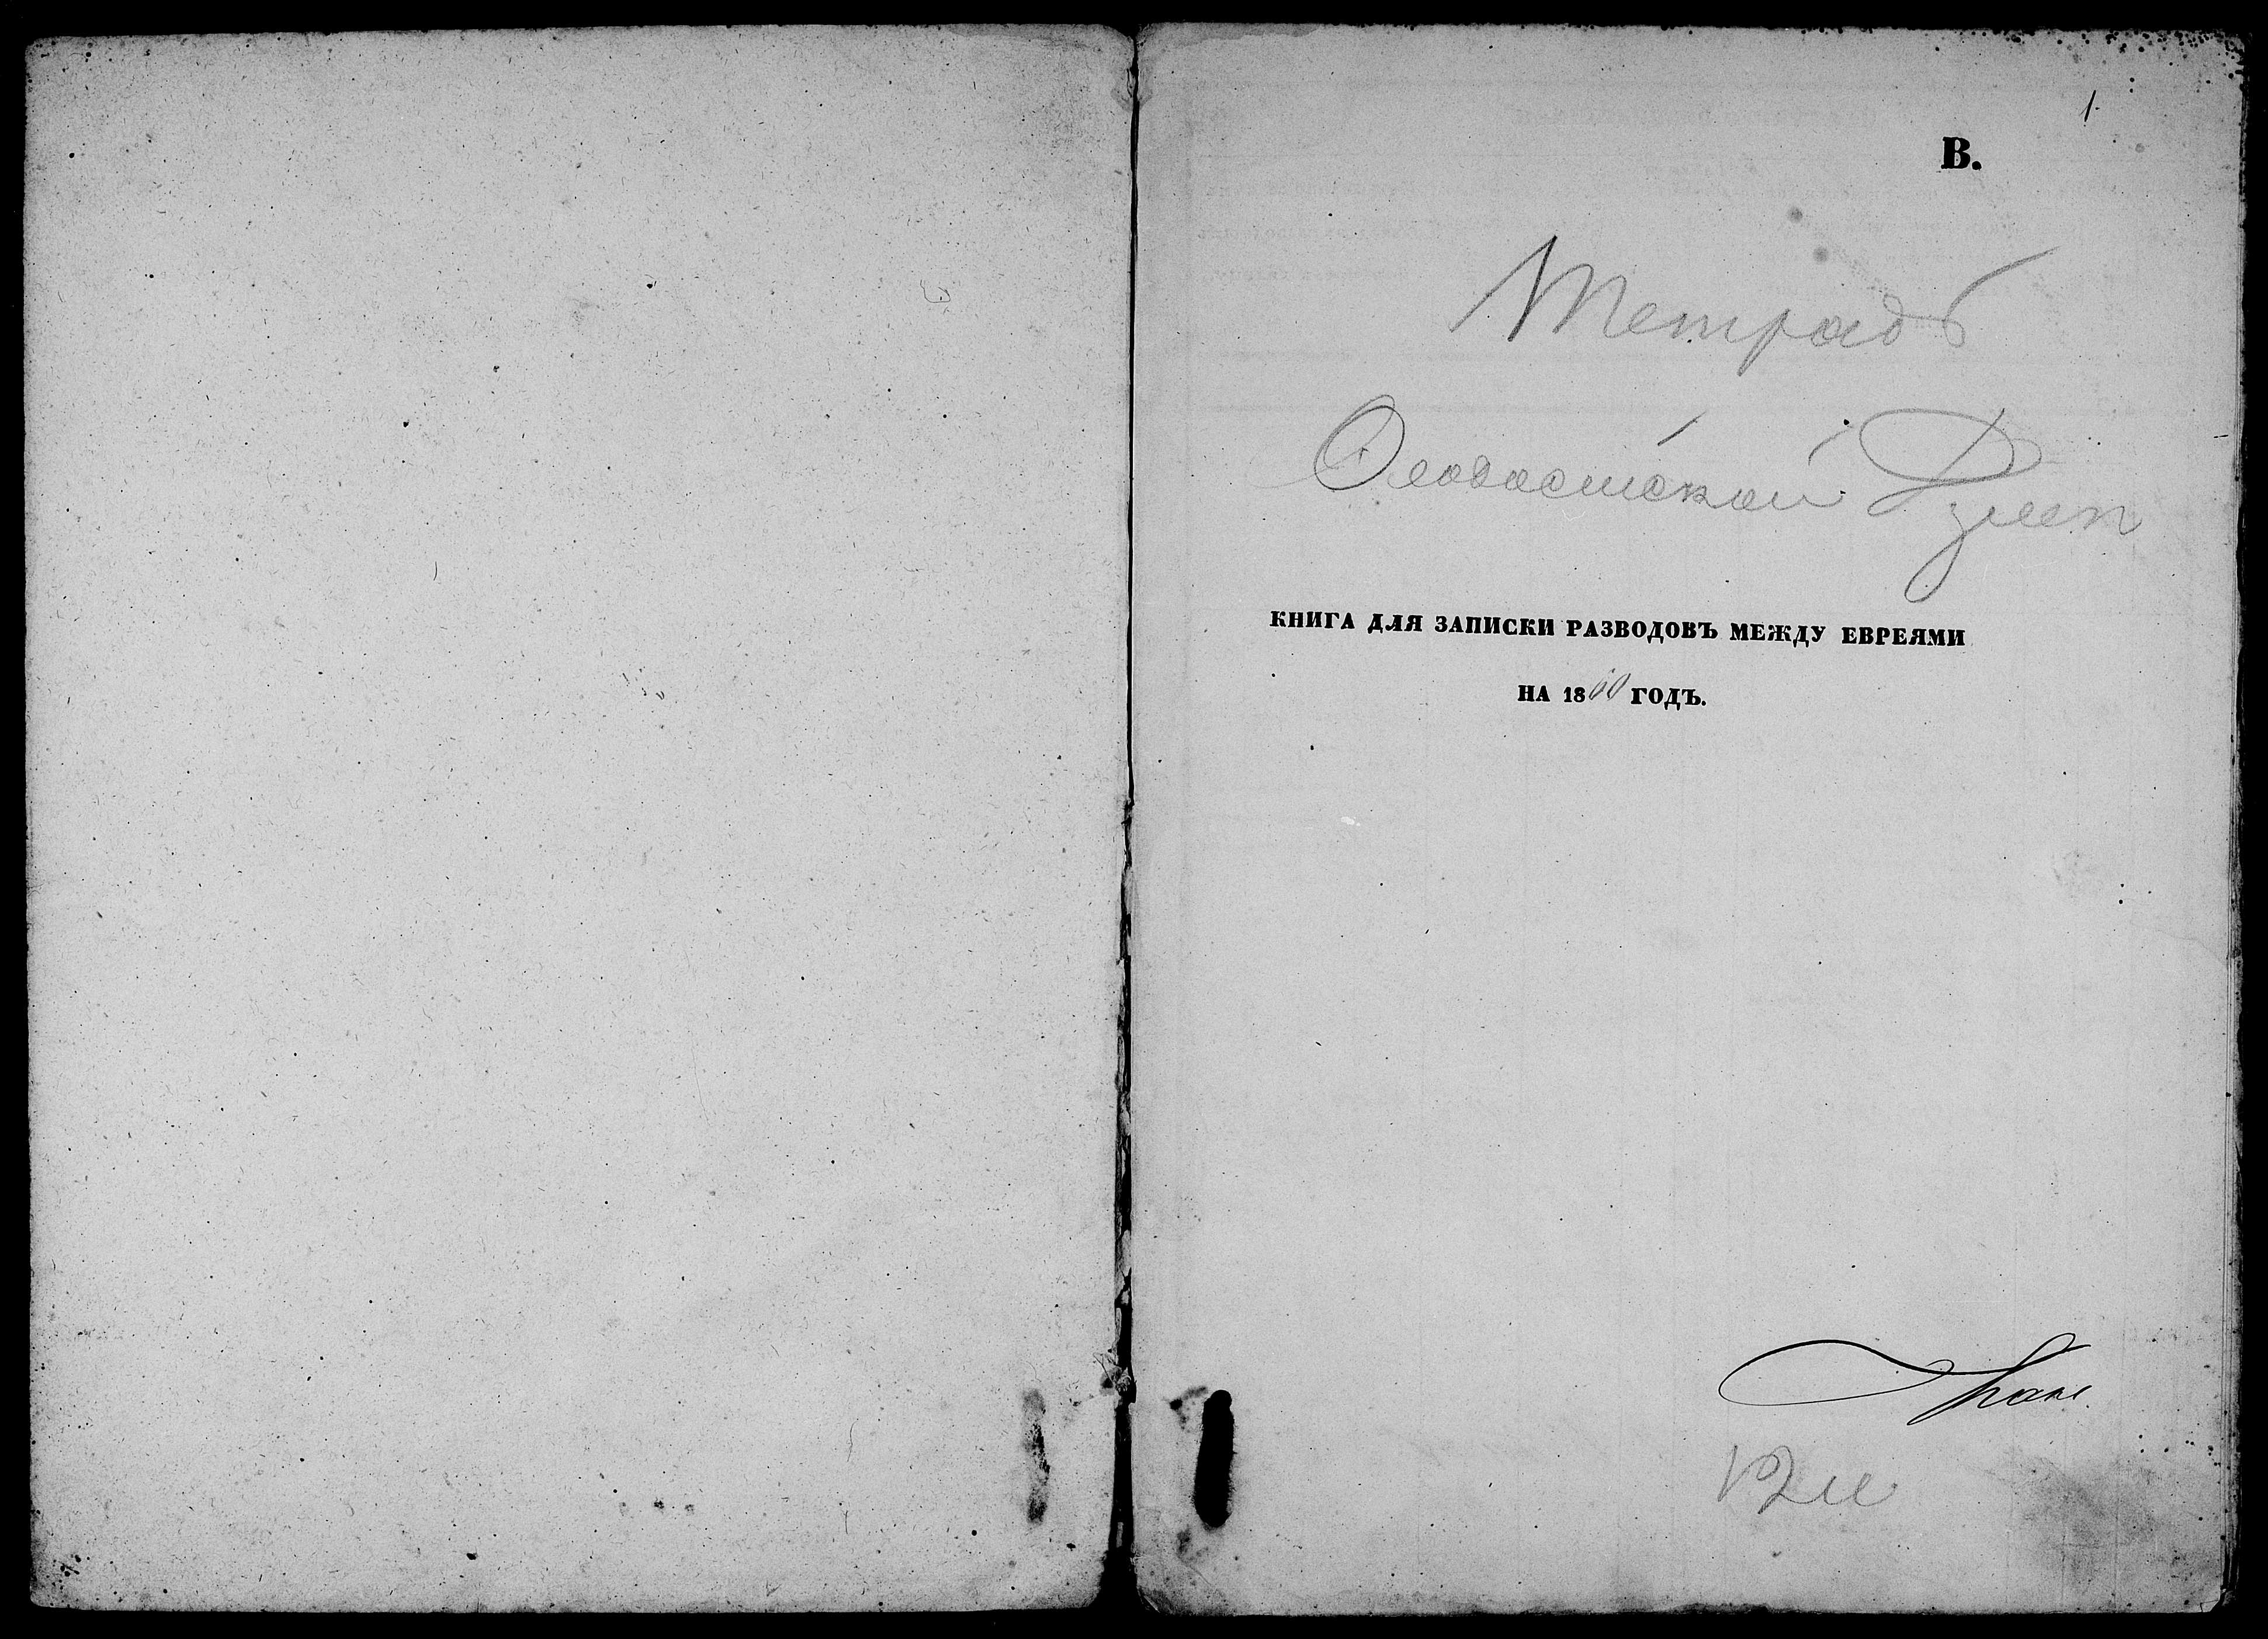 1
В.
Тетрадь
Ѳеодосійской
КНИГА ДЛЯ ЗАПИСКИ РАЗВОДОВЪ МЕЖДУ ЕВРЕЯМИ
НА 1860 ГОДЪ.